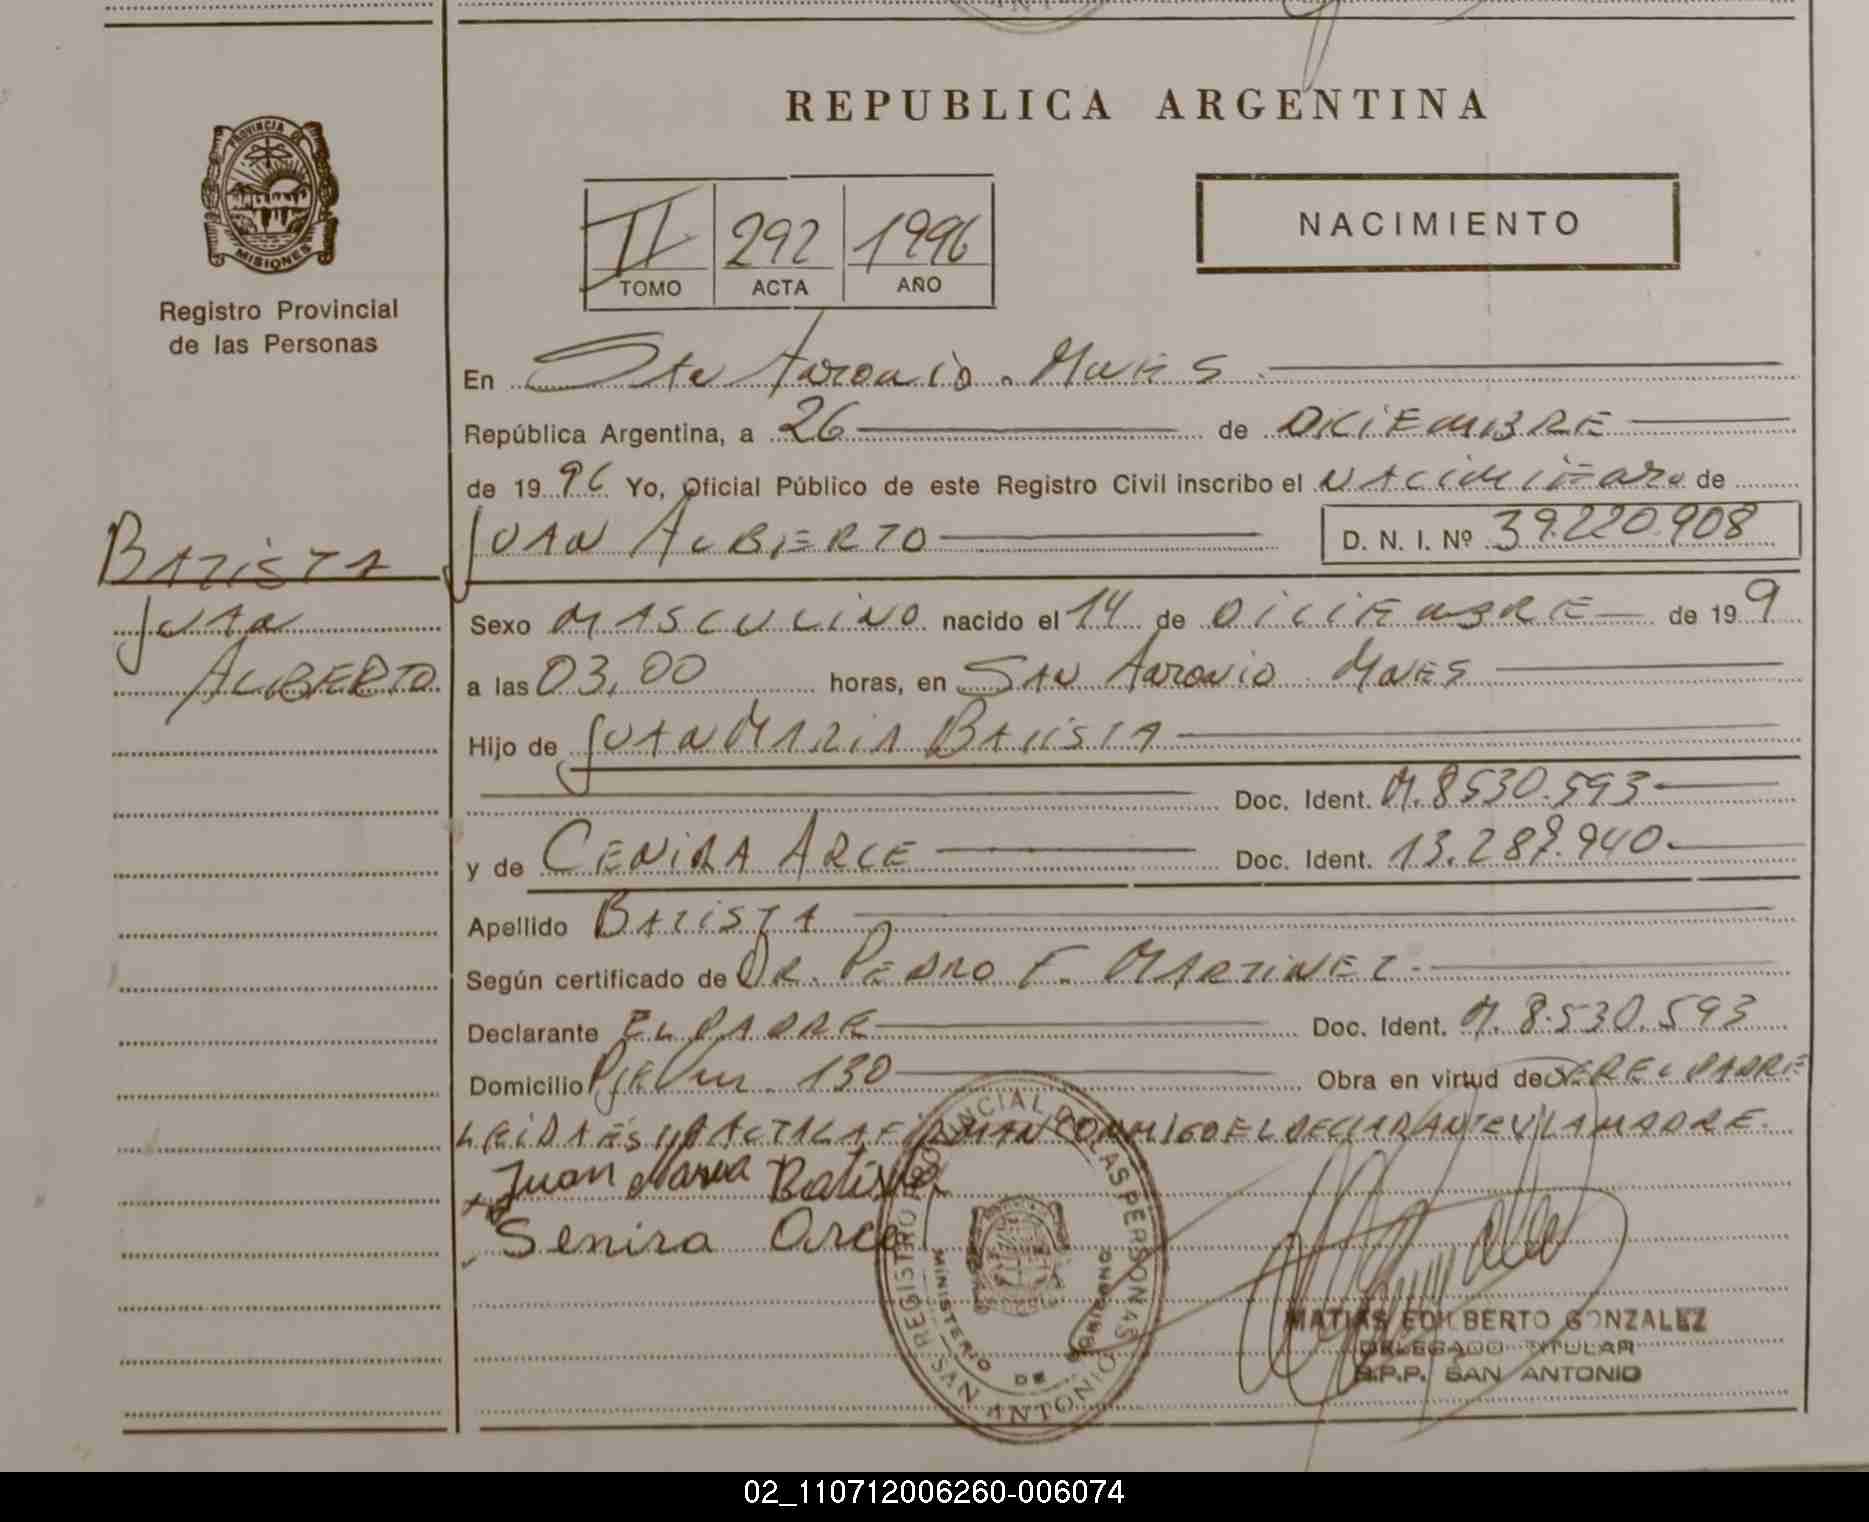 REPUBLICA ARGENTINA
PROVINCIA DE
MISIONES
Registro Provincial
de las Personas
II 292 1996
TOMO ACTA AÑO
NACIMIENTO
En Sta Antonio. Mnes
República Argentina, a 26 de DICIEMBRE
de 1996 Yo, Oficial Público de este Registro Civil inscribo el NACIMIENTO de
JUAN ALBERTO D. N. I. Nº 39.220.908
BATISTA
JUAN
ALBERTO
Sexo MASCULINO nacido el 14 de DICIEMBRE de 199
a las 03,00 horas, en SAN ANTONIO MNES
Hijo de JUAN MARIA BATISTA
Doc. Ident. M. 8530.593
y de CENIRA ARCE Doc. Ident. 13.287.940
Apellido BATISTA
Según certificado de DR. PEDRO F. MARTINEZ
Declarante EL PADRE Doc. Ident. M. 8.530.593
Domicilio 130 Obra en virtud de SER EL PADRE
LEIDA ESTA ACTA LA FIRMAN CONMIGO EL DECLARANTE Y LA MADRE.
Juan Maria Batista
Senira Arce
REGISTRO PROVINCIAL DE LAS PERSONAS
SAN ANTONIO
MINISTERIO DE GOBIERNO
MATIAS EDILBERTO GONZALEZ
DELEGADO TITULAR
R.P.P. SAN ANTONIO
02_110712006260-006074